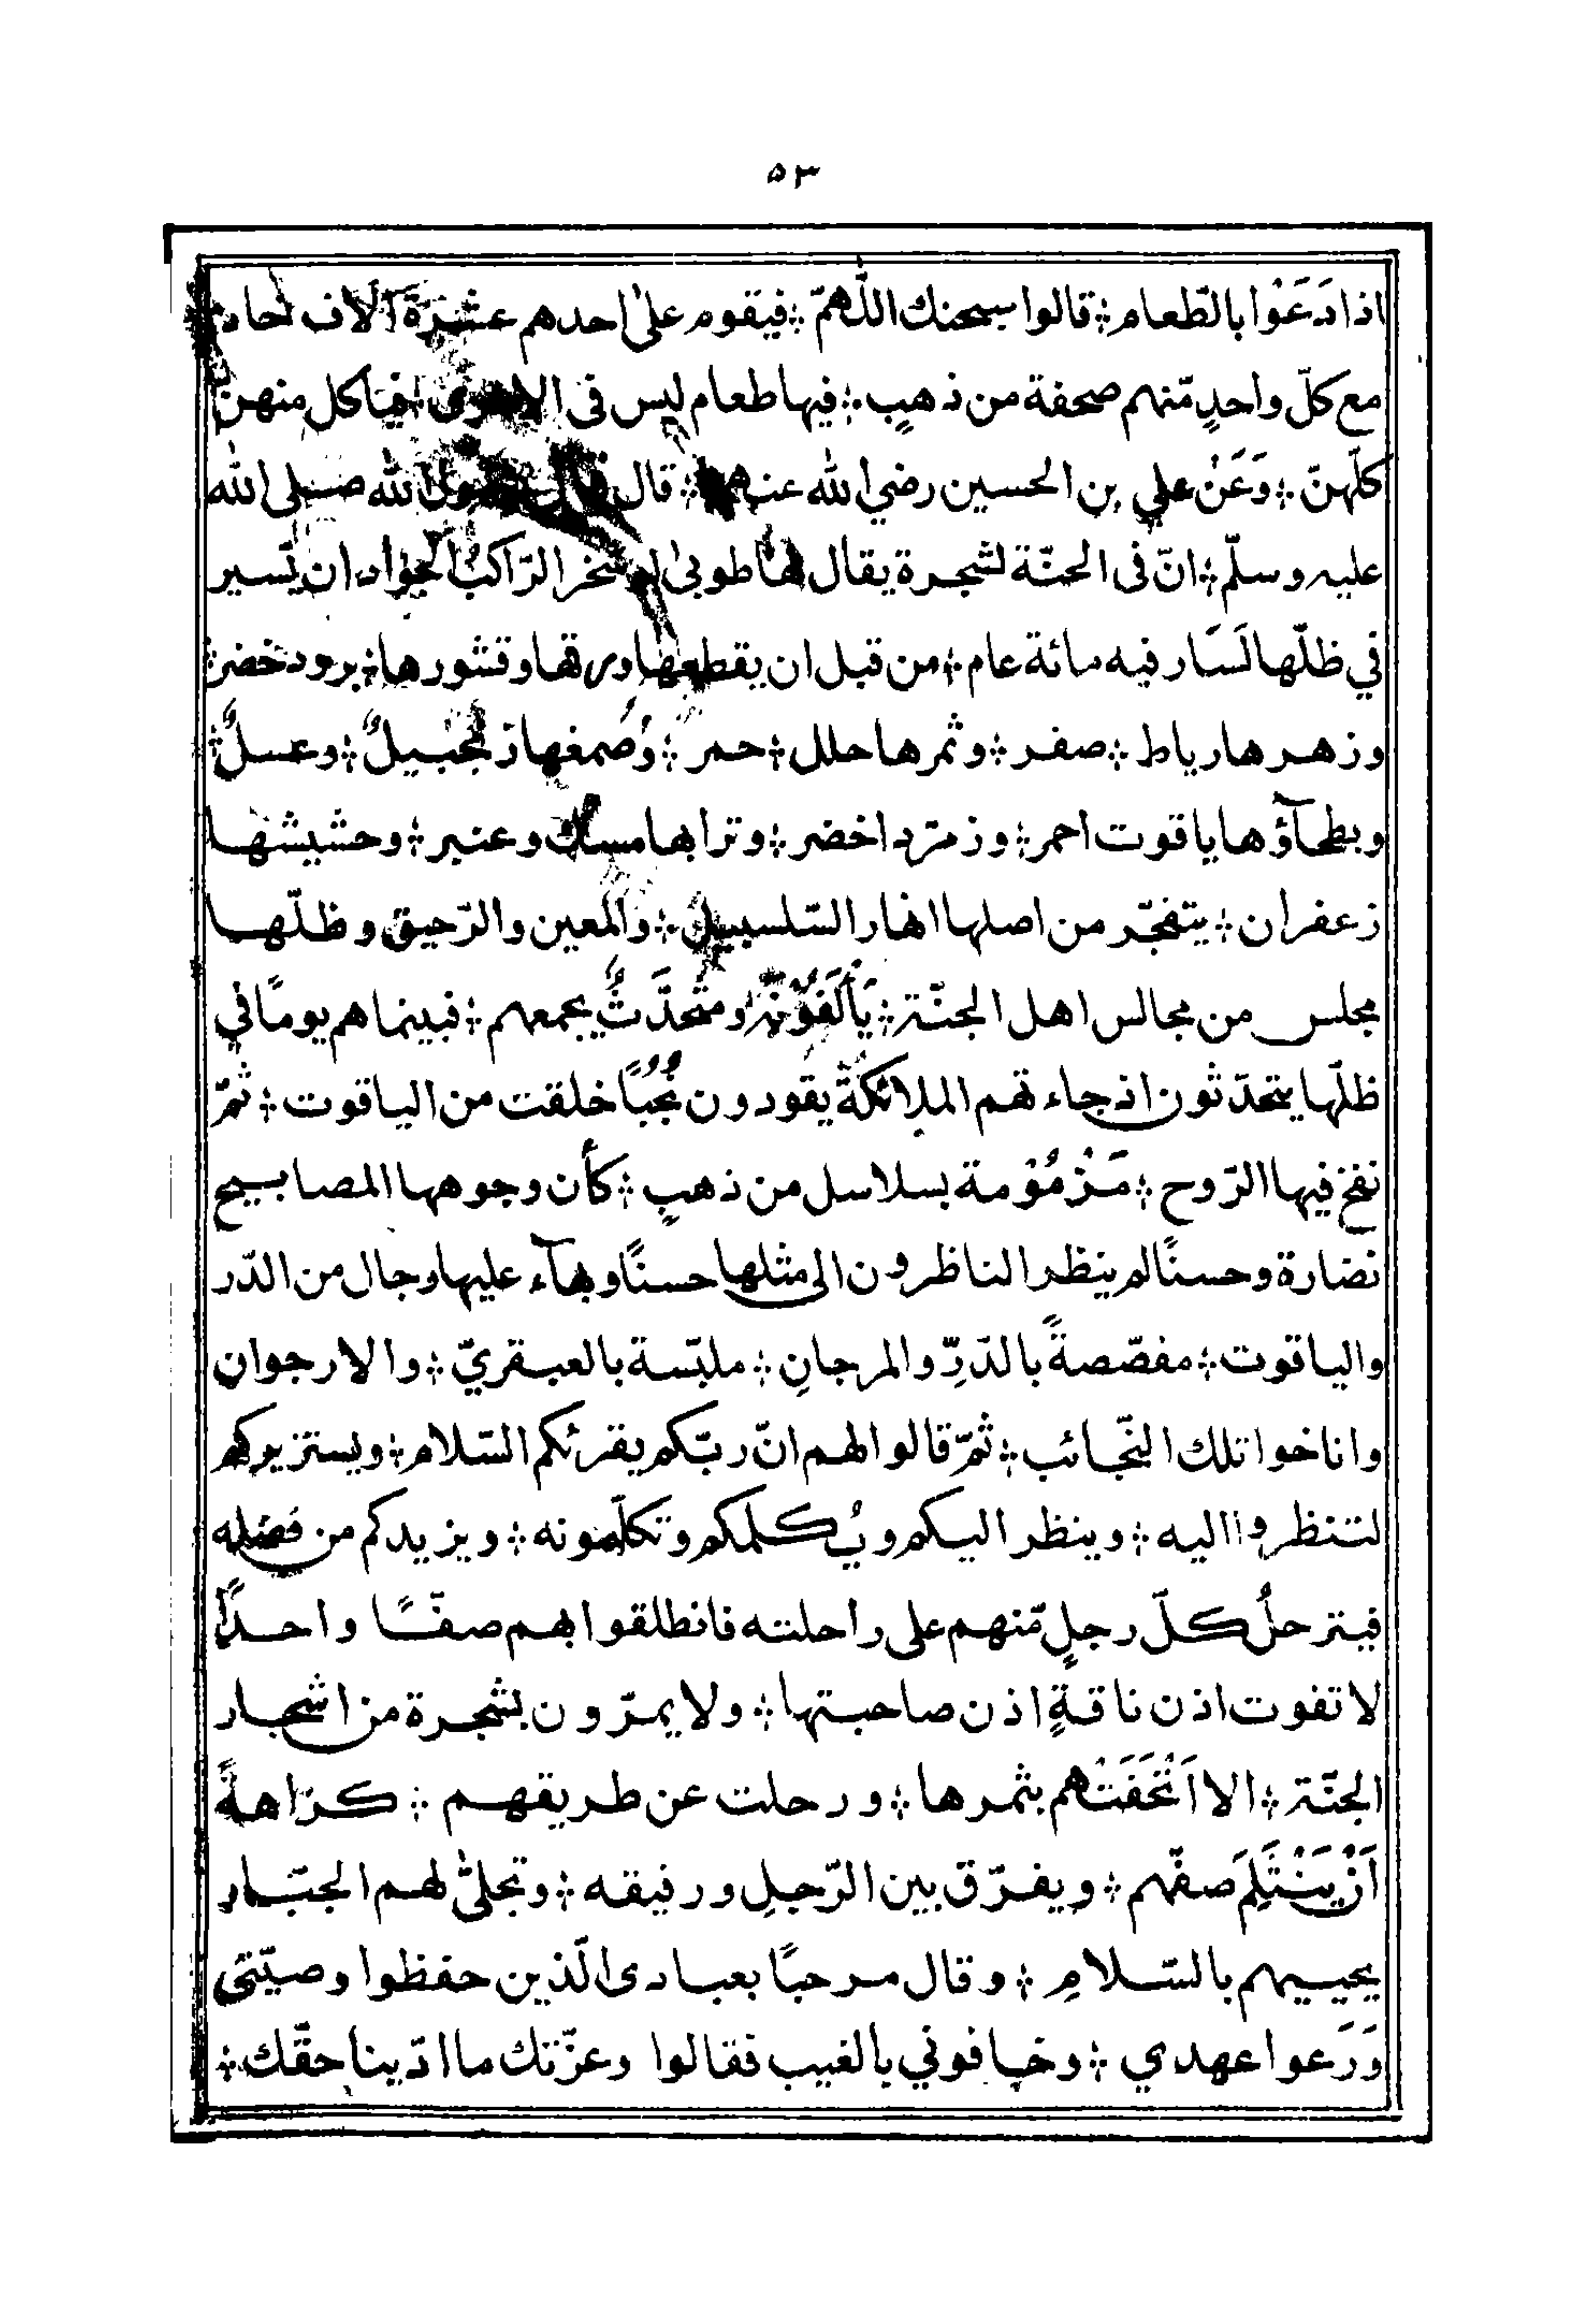 ٥٣
اذا دَعَوْا بالطّعام ؞ قالوا سبحنك اللّٰهمّ ؞ فيقوم علىٰ احدهم عشرَةَ آلاف خادم
مع كلّ واحدٍ مّنهم صحفة من ذهبٍ ؞ فيها طعام ليس فى الاخرى ؞ فياكل منهنّ
كلّهنّ ؞ وَعَنْ علي بن الحسين رضي الله عنهما ؞ قال قال رسول الله صلى الله
عليه وسلّم ؞ انّ فى الجنّة لشجرة يقال لها طوبىٰ لو الرّاكبُ الجواد ان يّسير
في ظلّها لَسَار فيه مائة عام ؞ من قبل ان يقطعها ورقها وقشورها ؞ برود خضر ؞
وزهرها رياط ؞ صفر ؞ وثمرها حلل ؞ حمر ؞ وَصَمغها زنجبيلٌ ؞ وعسلٌ ؞
وبطحآؤها ياقوت احمر ؞ وزمرّد اخضر ؞ وترابها مسك وعنبر ؞ وحشيشها
زعفران ؞ يتفجّر من اصلها انهار السّلسبيل ؞ والمعين والرّحيق وظلّها
مجلس من مجالس اهل الجنّة ؞ يَألَفُوْنَهُ ومتحَدَّثٌ بجمعهم ؞ فبينما هم يومًا في
ظلّها يتحدّثون اذ جاءتهم الملائكةُ يقودون نُجُبًا خلقت من الياقوت ؞ ثمّ
نفخ فيها الرّوح ؞ مَزْمُوْمة بسلاسل من ذهبٍ ؞ كأن وجوهها المصابيح
نضارة وحسنًا لم ينظر الناظرون الى مثلها حسنًا وبهآء عليها رحال من الدّر
والياقوت ؞ مفصّصةً بالدّرِّ والمرجانِ ؞ ملبّسة بالعبقريّ ؞ والارجوان
واناخوا تلك النّجائب ؞ ثمّ قالوا لهم انّ ربّكم يقرئكم السّلام ؞ ويستزيركم
لتنظروا اليه ؞ وينظر اليكم ويُكلمكم وتكلّمونه ؞ ويزيدكم من فضله
فيترحلُ كلّ رجلٍ مّنهم على راحلته فانطلقوا بهم صفًّا واحدًا
لا تفوت اذن ناقةٍ اذن صاحبتها ؞ ولا يمرّون بشجرة من اشجار
الجنّة ؞ الا اَتْحَفَتْهم بثمرها ؞ ورحلت عن طريقهم ؞ كراهةً
اَنْ يَنْثَلِمَ صفّهم ؞ ويفرّق بين الرّجلِ ورفيقه ؞ وتجلىّٰ لهم الجبّار
يحييهم بالسّلامِ ؞ وقال مرحبًا بعبادى الّذين حفظوا وصيّتى
وَرَعوا عهدي ؞ وخافوني بالغيب فقالوا وعزّتك ما ادّينا حقّك ؞